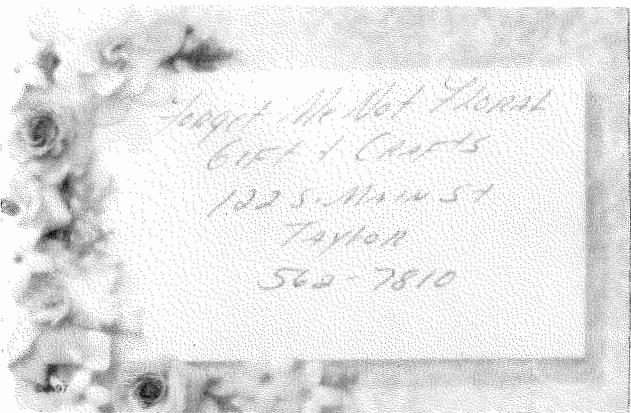 Forget Me Not Floral
Gift & Crafts
122 S. Main St
Taylor
562-7810